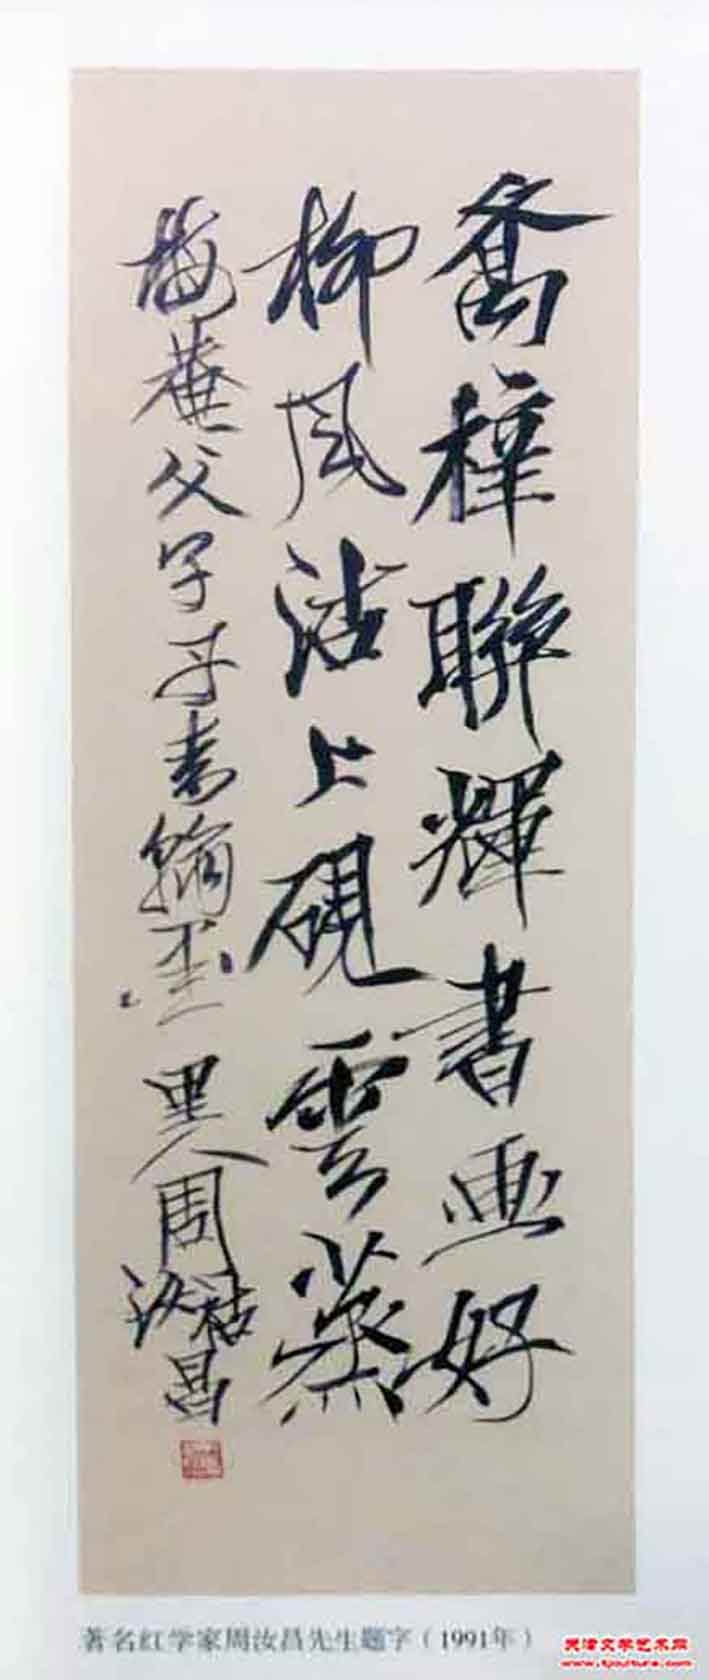 喬梓聯輝書画好
柳風沽上硯雲蒸
梅菴父子丹青翰墨 里人周祜汝昌
著名红学家周汝昌先生题字（1991年）
天津文学艺术网